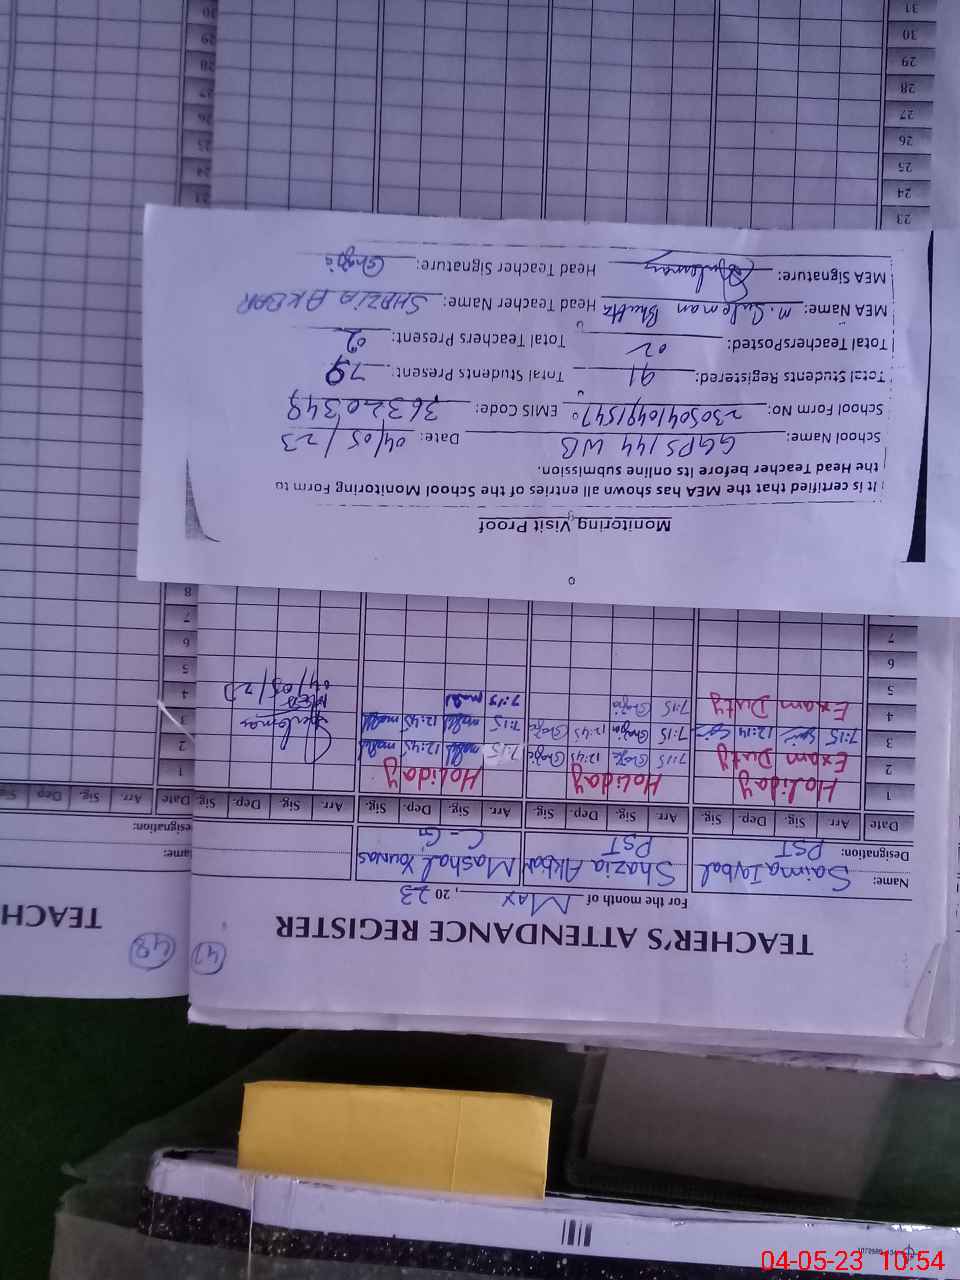 TEACHER'S ATTENDANCE REGISTER
42
For the month of May, 2023
Name: Saima Iqbal Shazia Akbar Mashal Younas
Designation: PST PST C-G
Date Arr. Sig. Dep. Sig. Arr. Sig. Dep. Sig. Arr. Sig. Dep. Sig. Arr. Sig. Dep. Sig.
1 Holiday Holiday Holiday
2 Exam Duty 7:15 Shazia 12:45 Shazia 7:15 12:45
3 7:15 12:14 7:15 Shazia 12:45 Shazia 7:15 12:45
4 Exam Duty 7:15 Shazia 7:15
04/05/23
5
6
7
Monitoring Visit Proof
It is certified that the MEA has shown all entries of the School Monitoring Form to
the Head Teacher before its online submission.
School Name: GGPS 144 WB Date: 04/05/23
School Form No: EMIS Code: 36320349
Total Students Registered: 91 Total Students Present: 79
Total TeachersPosted: 02 Total Teachers Present: 02
MEA Name: M. Suleman Bhutta Head Teacher Name: SHAZIA AKBAR
MEA Signature: Head Teacher Signature: Shazia
23
24
25
26
27
28
29
30
31
43
TEACH
Name:
Designation:
Date Arr. Sig. Dep. Sig.
1
2
3
4
5
6
7
8
04-05-23 10:54